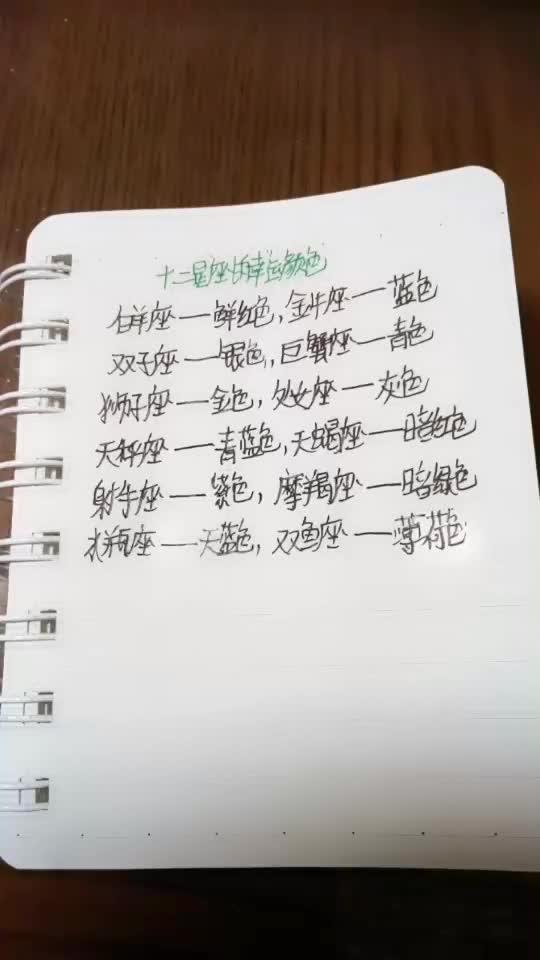 十二星座的幸运颜色
白羊座—鲜红色,金牛座—蓝色
双子座—银色,巨蟹座—青色
狮子座—金色,处女座—灰色
天秤座—青蓝色,天蝎座—暗红色
射手座—紫色,摩羯座—暗绿色
水瓶座—天蓝色,双鱼座—薄荷色